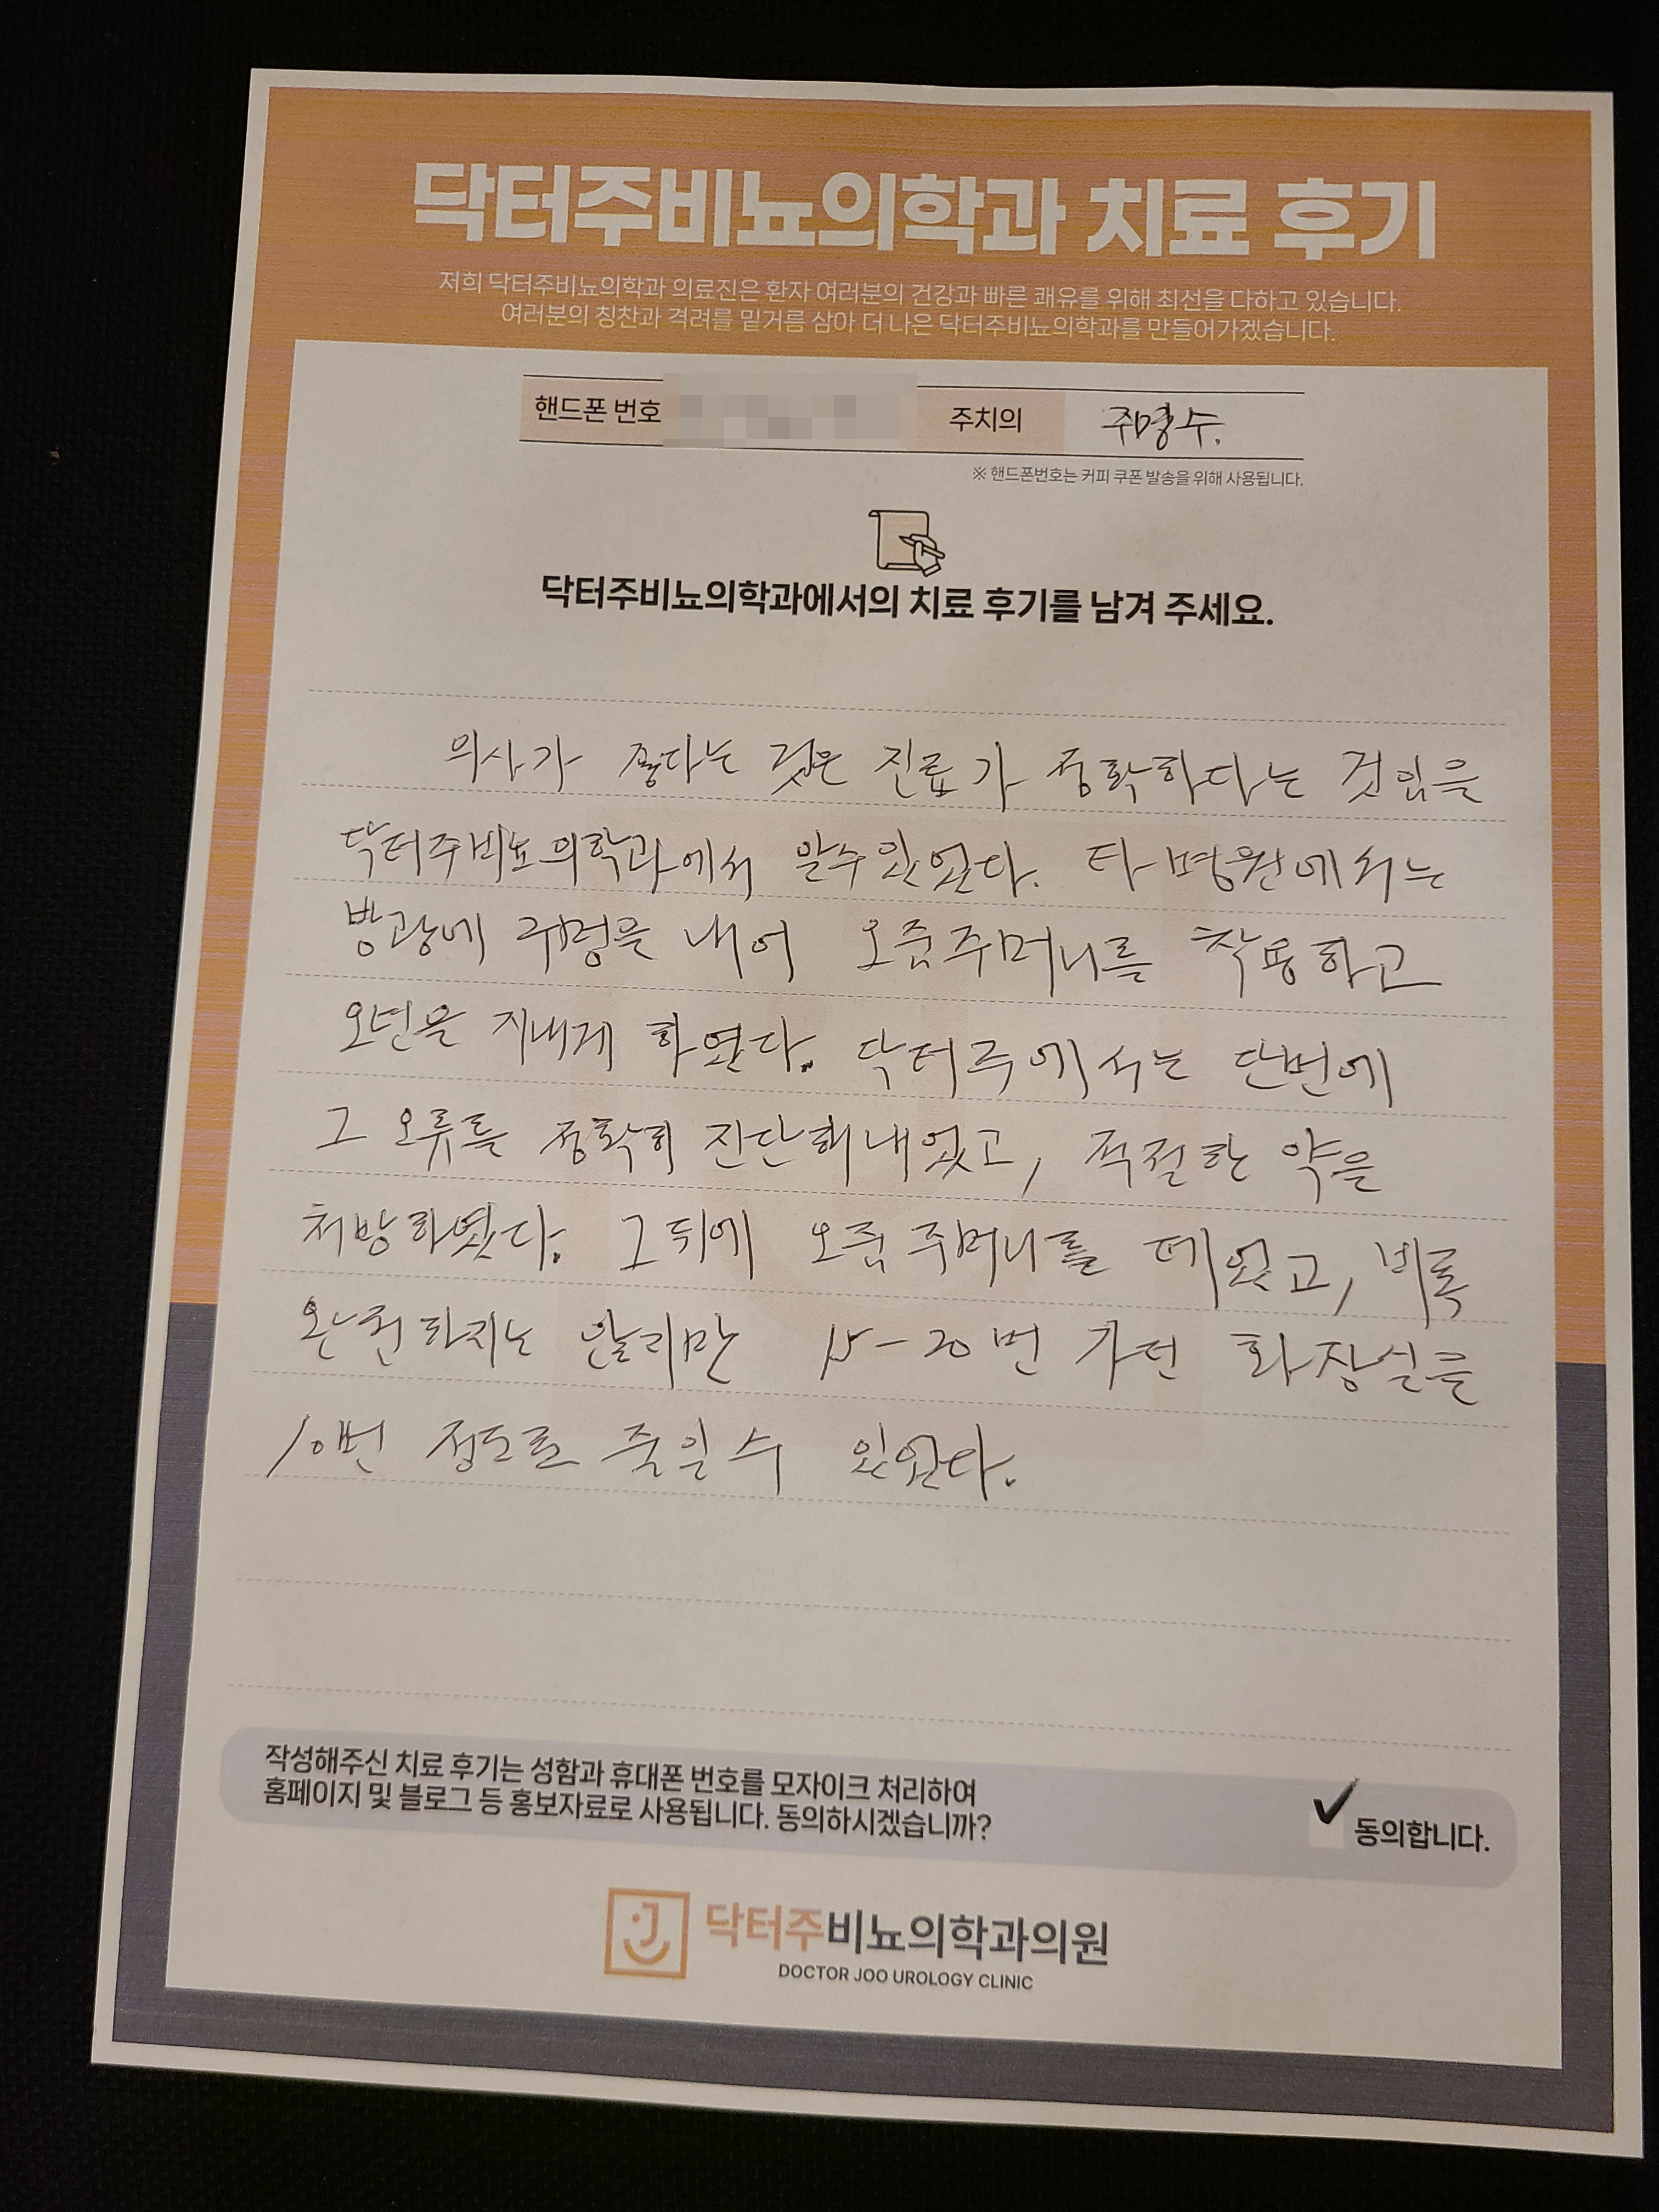 닥터주비뇨의학과 치료 후기
저희 닥터주비뇨의학과 의료진은 환자 여러분의 건강과 빠른 쾌유를 위해 최선을 다하고 있습니다.
여러분의 칭찬과 격려를 밑거름 삼아 더 나은 닥터주비뇨의학과를 만들어가겠습니다.
핸드폰 번호 주치의 주명수.
※ 핸드폰번호는 커피 쿠폰 발송을 위해 사용됩니다.
닥터주비뇨의학과에서의 치료 후기를 남겨 주세요.
의사가 좋다는 것은 진료가 정확하다는 것임을
닥터주비뇨의학과에서 알수 있었다. 타 병원에서는
방광에 구멍을 내어 오줌주머니를 착용하고
오년을 지내게 하였다. 닥터주에서는 단번에
그 오류를 정확히 진단해 내었고, 적절한 약을
처방하였다. 그 뒤에 오줌주머니를 떼었고, 비록
완전하지는 않지만 15-20번 가던 화장실을
10번 정도로 줄일 수 있었다.
작성해주신 치료 후기는 성함과 휴대폰 번호를 모자이크 처리하여
홈페이지 및 블로그 등 홍보자료로 사용됩니다. 동의하시겠습니까?
동의합니다.
닥터주비뇨의학과의원
DOCTOR JOO UROLOGY CLINIC